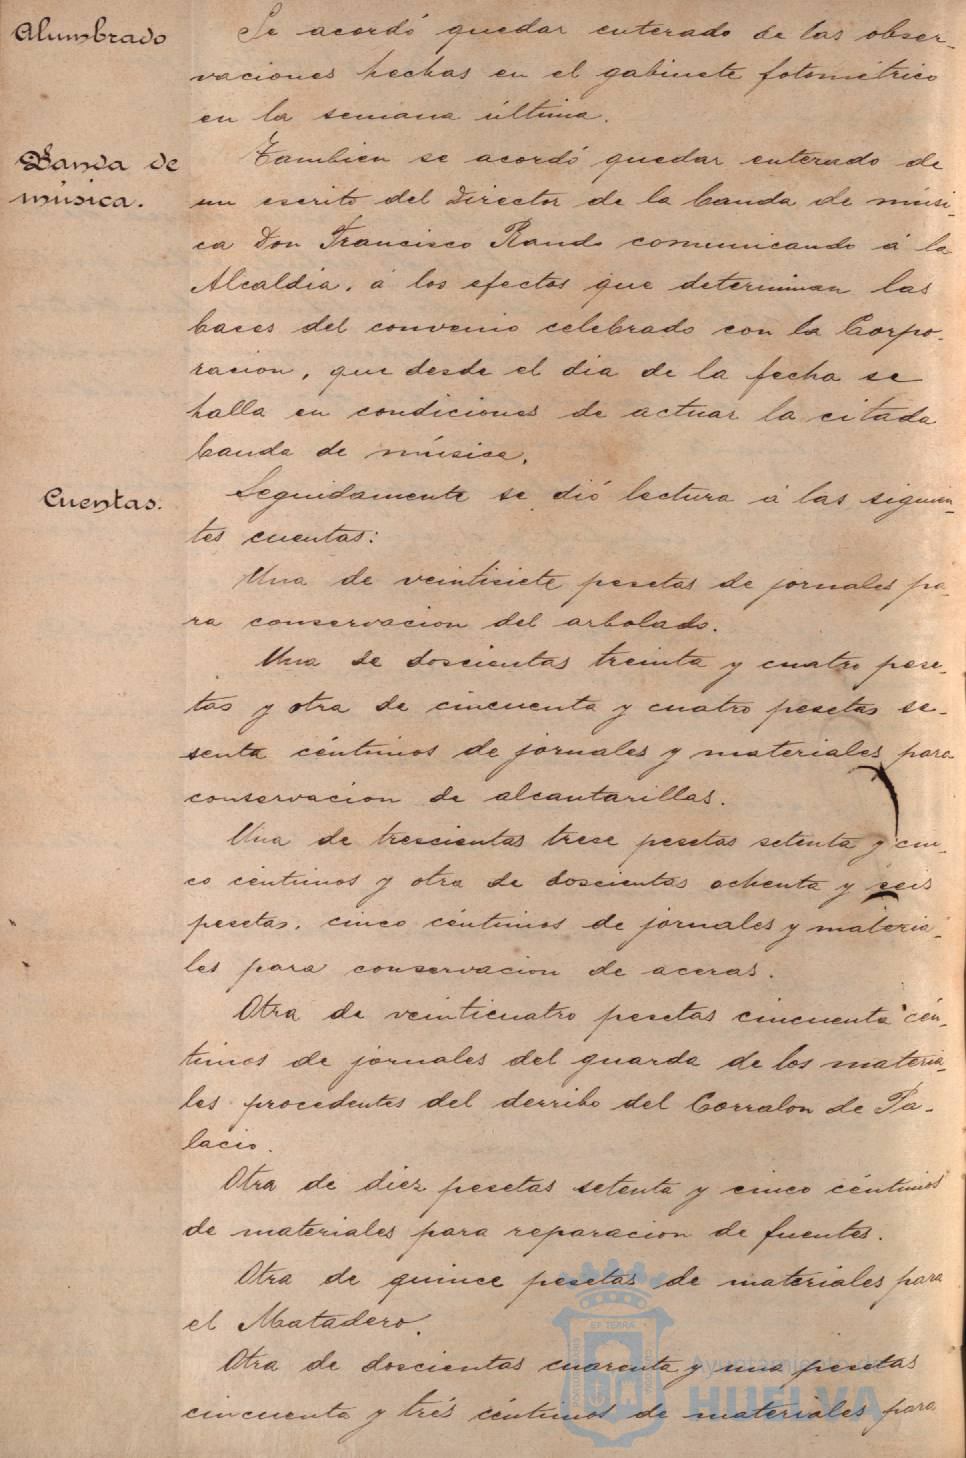 Alumbrado
Se acordó quedar enterado de las obser-
vaciones hechas en el gabinete fotométrico
en la semana última.
Banda de
música.
Tambien se acordó quedar enterado de
un escrito del Director de la banda de músi-
ca Don Francisco Rando comunicando á la
Alcaldia, á los efectos que determinan las
bases del convenio celebrado con la Corpo-
racion, que desde el dia de la fecha se
halla en condiciones de actuar la citada
banda de música.
Cuentas.
Seguidamente se dió lectura á las siguien-
tes cuentas:
Una de veintisiete pesetas de jornales pa-
ra conservacion del arbolado.
Una de doscientas treinta y cuatro pese-
tas y otra de cincuenta y cuatro pesetas se-
senta céntimos de jornales y materiales para
conservacion de alcantarillas.
Una de trescientas trece pesetas setenta y cin-
co céntimos y otra de doscientas ochenta y seis
pesetas, cinco céntimos de jornales y materia-
les para conservacion de aceras.
Otra de veinticuatro pesetas cincuenta cén-
timos de jornales del guarda de los materia-
les procedentes del derribo del Corralon de Pa-
lacio.
Otra de diez pesetas setenta y cinco céntimos
de materiales para reparacion de fuentes.
Otra de quince pesetas de materiales para
el Matadero.
Otra de doscientas cuarenta y una pesetas
cincuenta y trés céntimos de materiales para
ET TERRA
Ayuntamiento de
HUELVA